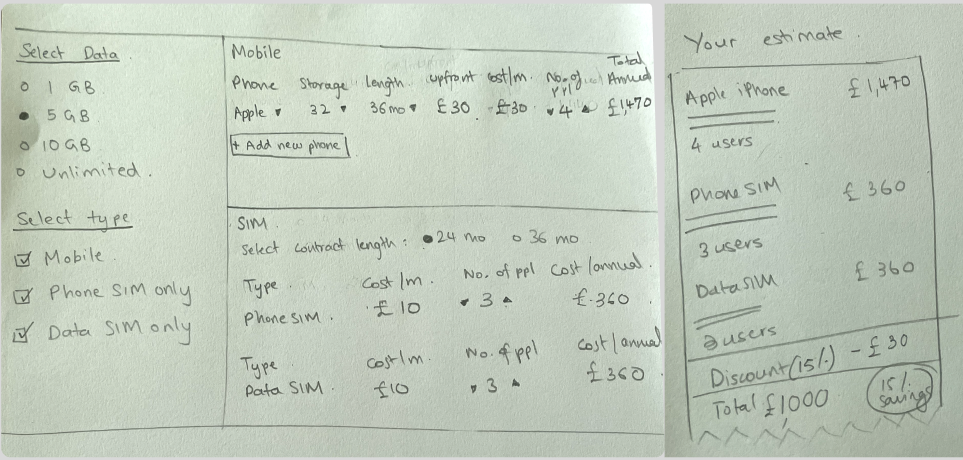 Select Data
1 GB
5 GB
10 GB
Unlimited.
Select type
Mobile
Phone SIM only
Data SIM only
Mobile
Phone Storage length upfront cost/m. No. of ppl Total Annual
Apple 32 36mo £30 £30 4 £1,470
+ Add new phone
SIM
Select contract length: 24 mo 36 mo
Type Cost/m. No. of ppl Cost/annual.
Phone SIM. £10 3 £360
Type Cost/m. No. of ppl Cost/annual
Data SIM. £10 3 £360
Your estimate.
Apple iPhone £1,470
4 users
Phone SIM £360
3 users
Data SIM £360
users
Discount (15%) - £30
Total £1000
15%
savings